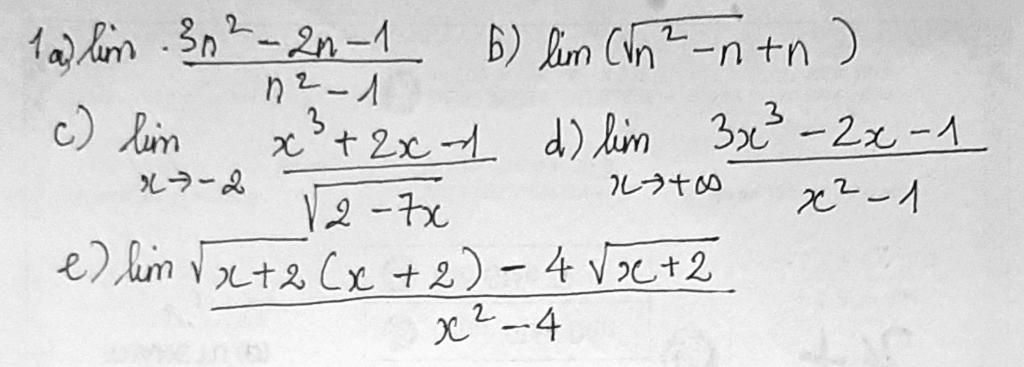 1a) lim (3n² - 2n - 1)/(n² - 1) b) lim (√(n² - n) + n)
c) lim x→-2 (x³ + 2x - 1)/√(2 - 7x) d) lim x→+∞ (3x³ - 2x - 1)/(x² - 1)
e) lim (√(x+2) (x + 2) - 4√(x+2))/(x² - 4)